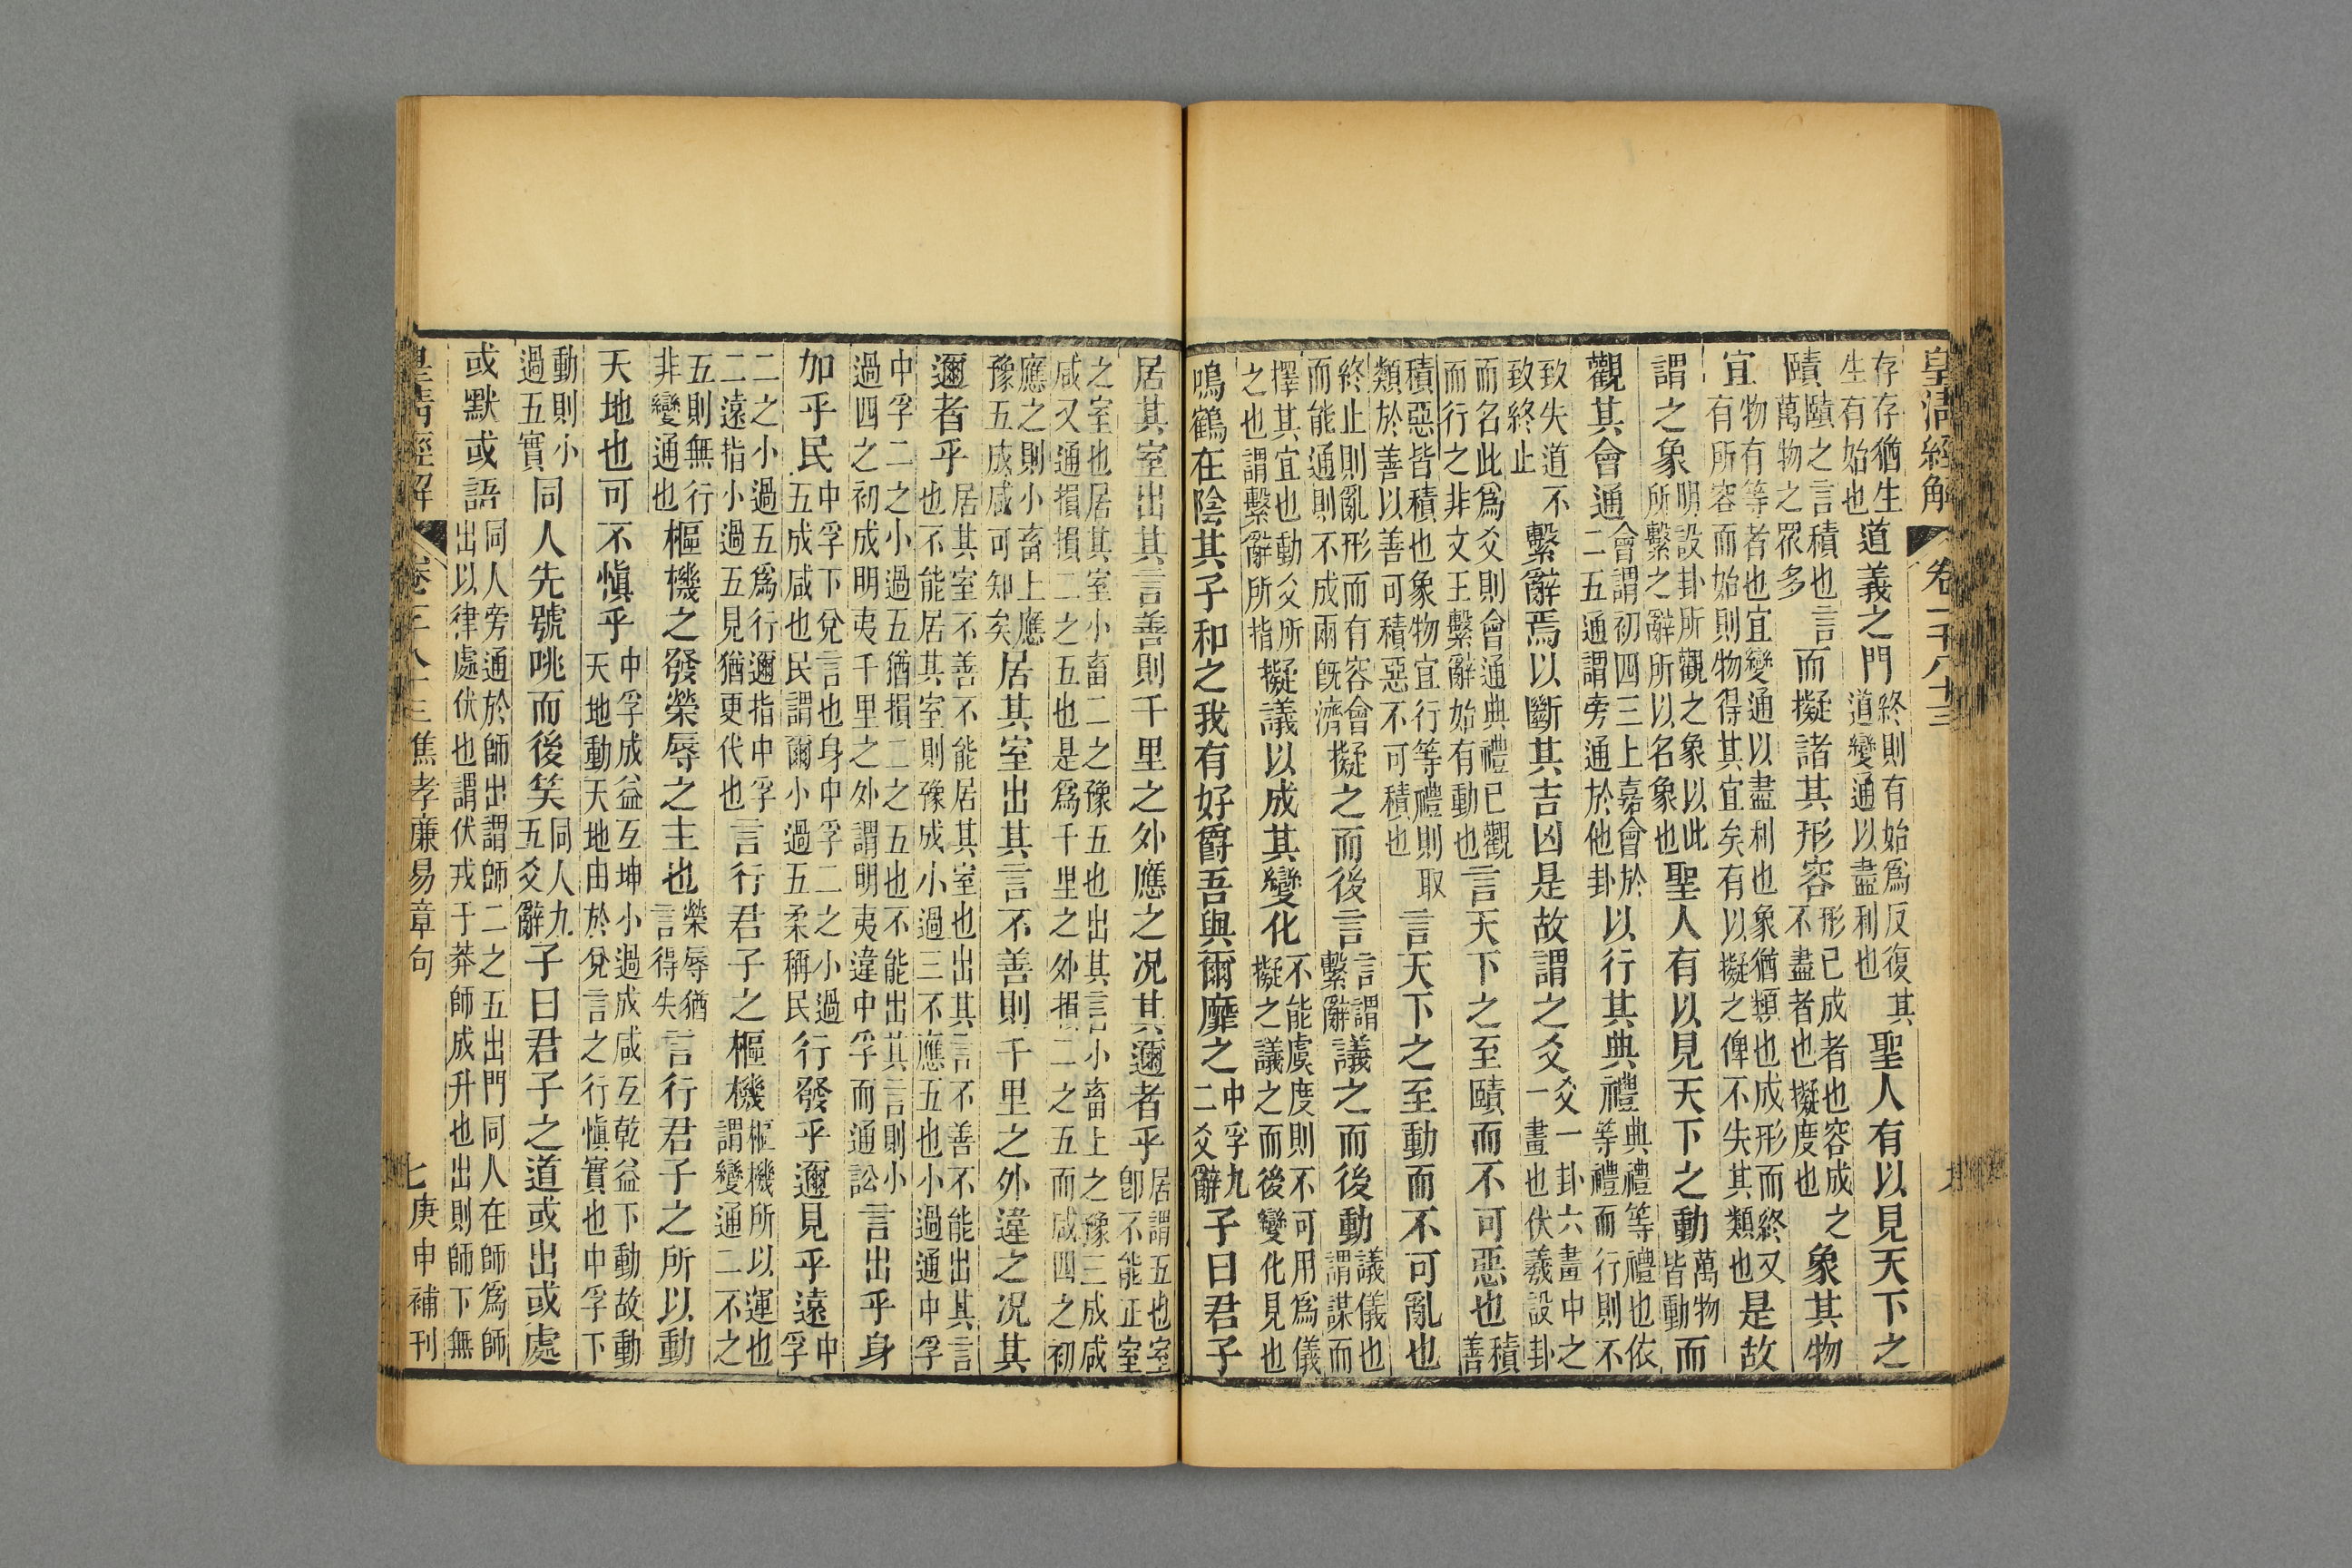 皇清經解 卷一千八十三
存存猶生生有始也道義之門終則有始爲反復其道變通以盡利也聖人有以見天下之
賾賾之言積也言萬物之眾多而擬諸其形容形已成者也容成之不盡者也擬度也象其物
宜物有等者也宜變通以盡利也象猶類也成形而終又有所容而始則物得其宜矣有以擬之俾不失其類也是故
謂之象明設卦所觀之象以此所繫之辭所以名象也聖人有以見天下之動萬物皆動而
觀其會通會謂初四三上嘉會於二五通謂旁通於他卦以行其典禮典禮等禮也依等禮而行則不
致失道不致終止繫辭焉以斷其吉凶是故謂之爻爻一卦六畫中之一畫也伏羲設卦
而名此爲爻則會通典禮已觀而行之非文王繫辭始有動也言天下之至賾而不可惡也積善
積惡皆積也象物宜行等禮則取類於善以善可積惡不可積也言天下之至動而不可亂也
終止則亂形而有容會而能通則不成兩旣濟擬之而後言言謂繫辭議之而後動議儀也謂謀而
擇其宜也動爻所之也謂繫辭所指擬議以成其變化不能虞度則不可用爲儀擬之議之而後變化見也
鳴鶴在陰其子和之我有好爵吾與爾靡之中孚九二爻辭子曰君子
居其室出其言善則千里之外應之況其邇者乎居謂五也室卽不能正室
之室也居其室小畜二之豫五也出其言小畜上之豫三成咸咸又通損損二之五也是爲千里之外損二之五而咸四之初
應之則小畜上應豫五成咸可知矣居其室出其言不善則千里之外違之況其
邇者乎居其室不善不能居其室也出其言不善不能出其言也不能居其室則豫成小過三不應五也小過通中孚
中孚二之小過五猶損二之五也不能出其言則小過四之初成明夷千里之外謂明夷違中孚而通訟言出乎身
加乎民中孚下兌言也身中孚二之小過五成咸也民謂爾小過五柔稱民行發乎邇見乎遠中孚
二之小過五爲行邇指中孚二遠指小過五見猶更代也言行君子之樞機樞機所以運也謂變通二不之
五則無行非變通也樞機之發榮辱之主也榮辱猶言得失言行君子之所以動
天地也可不愼乎中孚成益互坤小過成咸互乾益下動故動天地動天地由於兌言之行愼實也中孚下
動則小過五實同人先號咷而後笑同人九五爻辭子曰君子之道或出或處
或默或語同人旁通於師出謂師二之五出門同人在師爲師出以律處伏也謂伏戎于莽師成升也出則師下無
皇清經解 卷一千八十三 焦孝廉易章句 七 庚申補刊